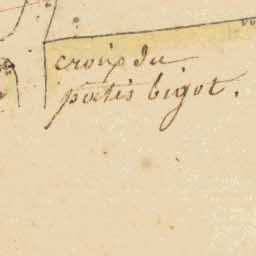 croix du
patis bigot.